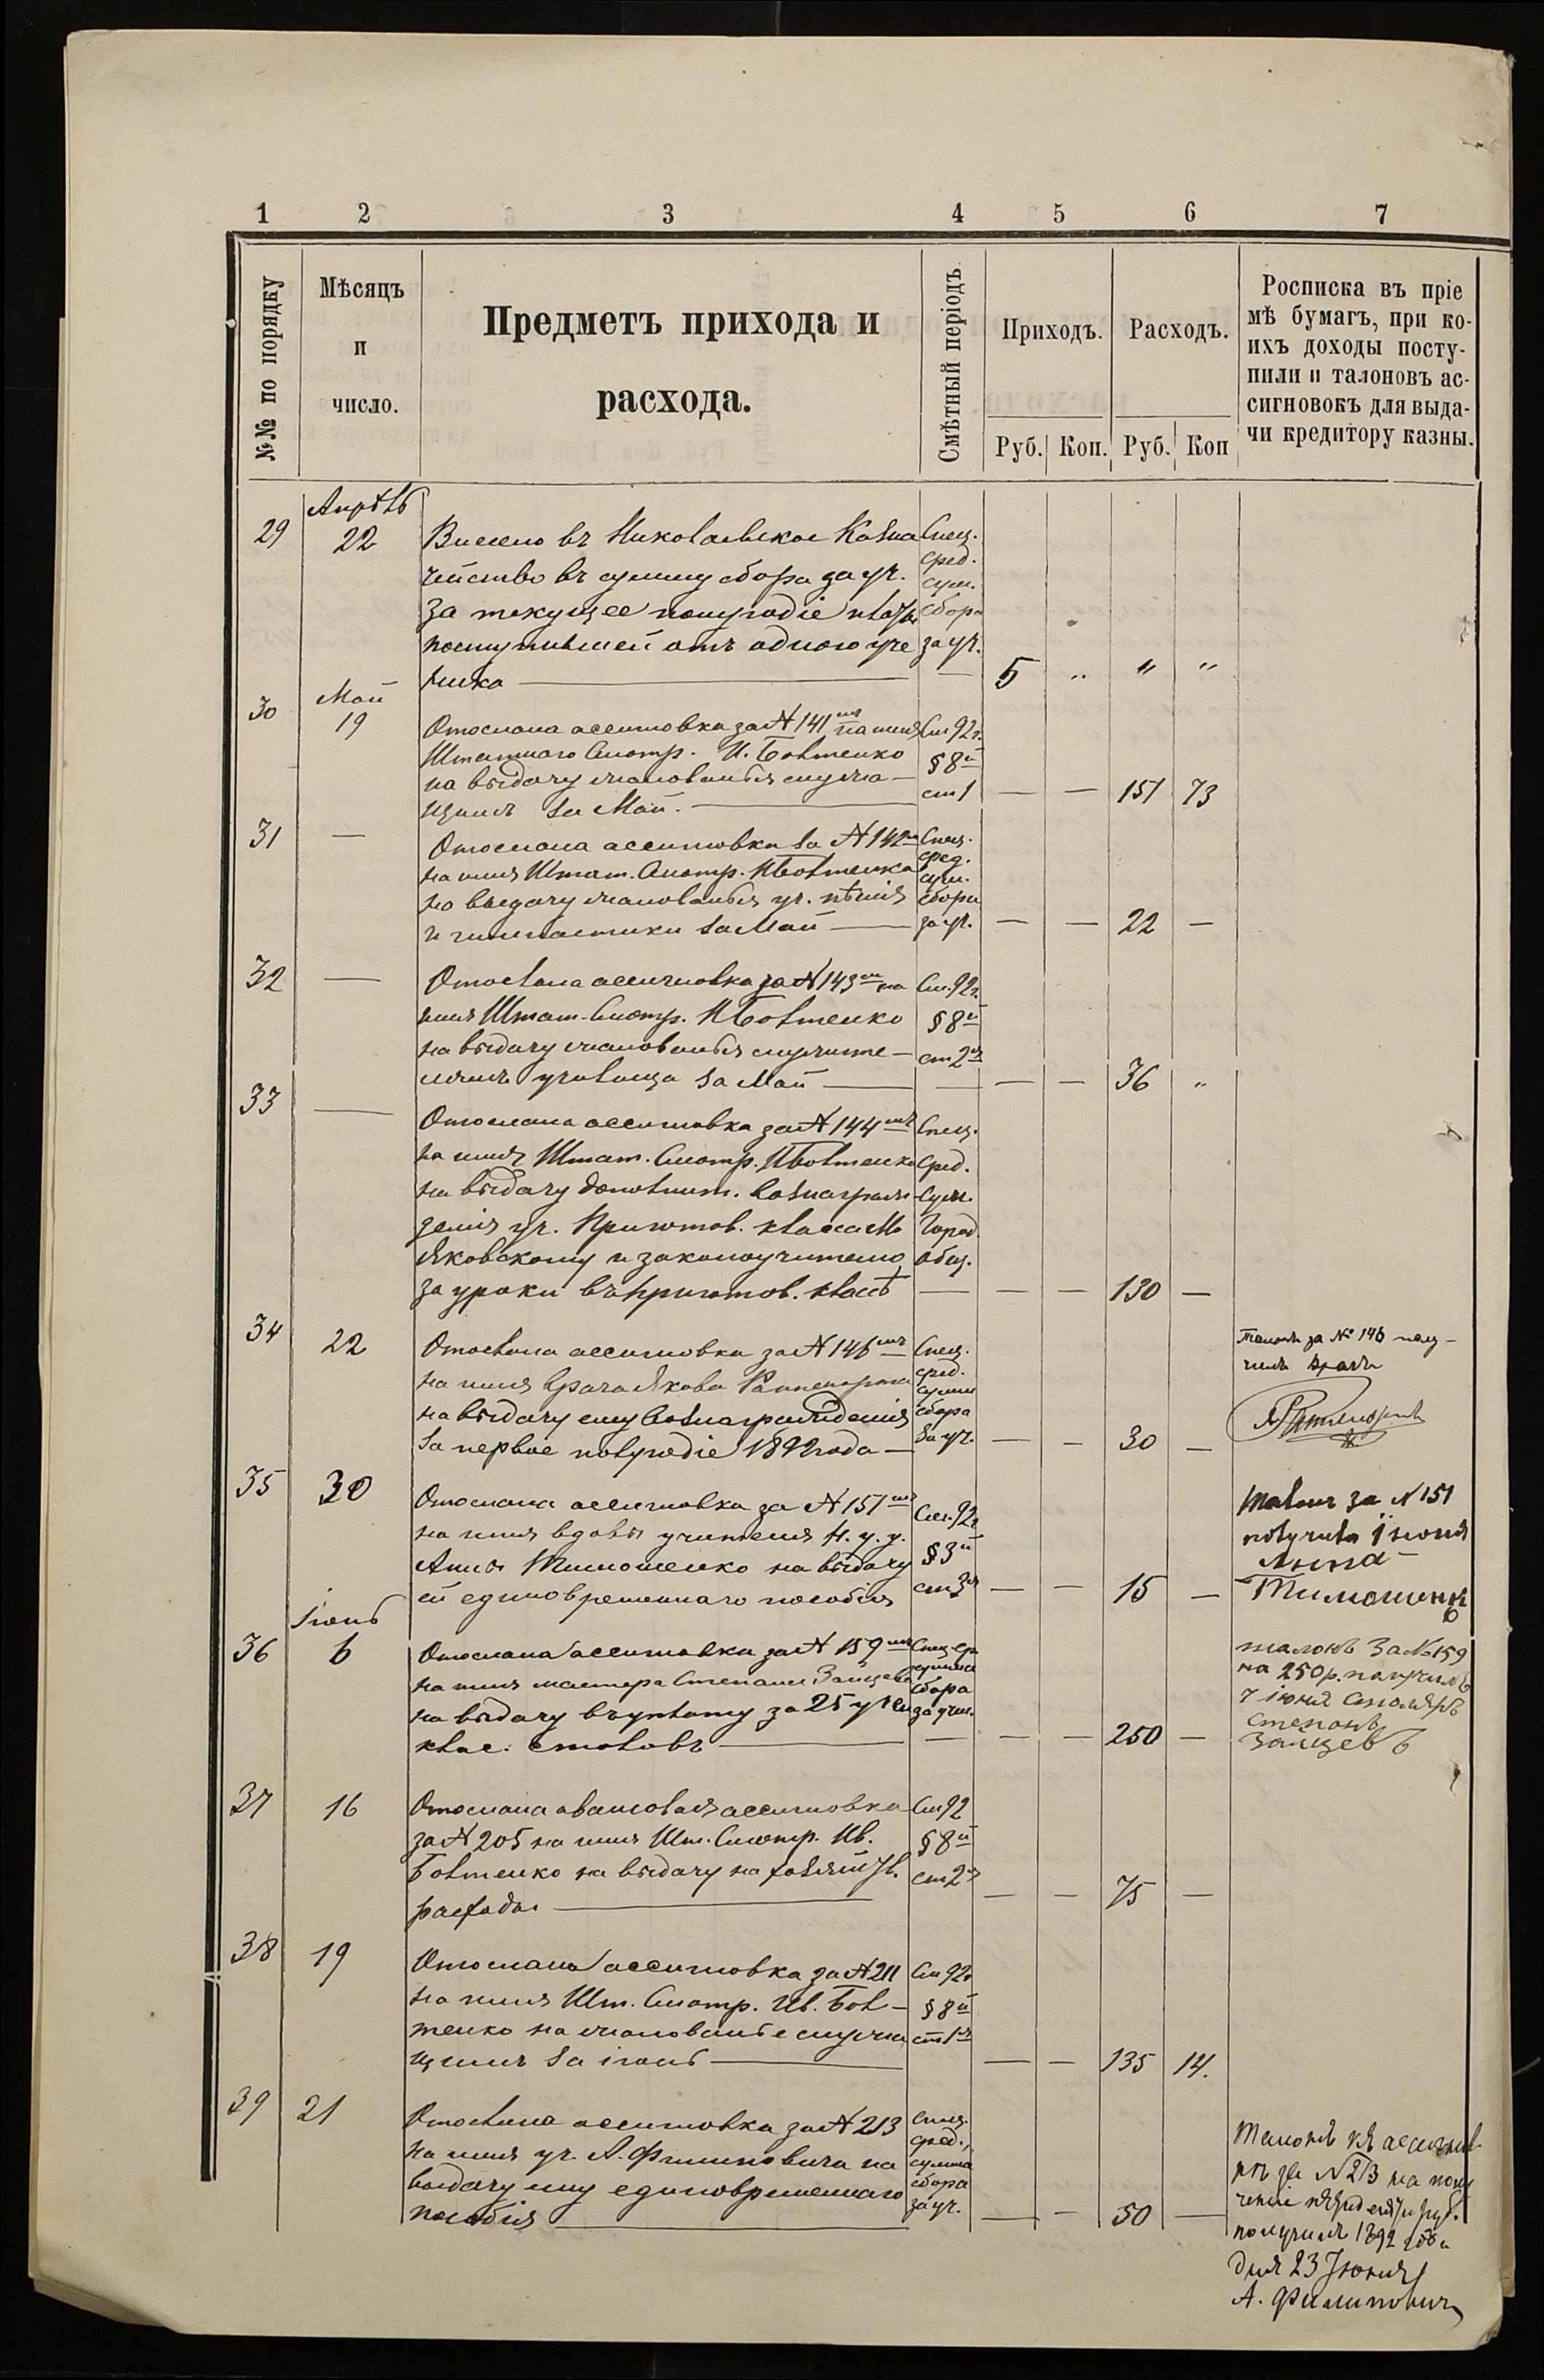 1 2 3 4 5 6 7
№№ по порядку
Мѣсяцъ
и
число.
Предметъ прихода и
расхода.
Смѣтный періодъ
Приходъ.
Руб. Коп.
Расходъ.
Руб. Коп
Росписка въ пріе
мѣ бумагъ, при ко-
ихъ доходы посту-
пили и талоновъ ас-
сигновокъ для выда-
чи кредитору казны.
Апрѣль
29 22 Внесено въ Николаевское Казна Спец.
сред.
чейство въ сумму сбора за уч. сум.
за текущее полугодіе платы сбора
поступившей отъ одного уче за уч.
ника — — 5 " " "
Май
30 19 Отослана ассигновка за № 141мъ на имя См 92 г.
Штатнаго Смотр. И. Бовтенко § 8й
на выдачу жалованья служа- ст 1 — — 151 73
щимъ за Май. —
31 — Отослана ассигновка за № 142мъ Спец.
сред.
на имя Штат. Смотр. И Бовтенко сум.
на выдачу жалованья уч. пѣнія сбора
и гимнастики за Май — за уч. — — 22 —
32 — Отослана ассигновка за № 143мъ на См. 92 г.
имя Штат. Смотр. И Бовтенко § 8й
на выдачу жалованья служите- ст 2я
лямъ училища за Май — — — — 36 "
33 — Отослана ассигновка за № 144мъ Спец.
на имя Штат. Смотр. И Бовтенко Сред.
на выдачу дополнит. вознаграж- Сум.
денія уч. Приготов. класса М Город.
Яковскому и законоучителю общ.
за уроки въ пригот. классѣ — — — 130 —
34 22 Отослана ассигновка за № 146мъ Спец.
сред.
на имя врача Якова сумм
на выдачу ему вознагражденія сбора
за первое полугодіе 1892 года — за уч. — — 30 —
Талонъ за № 146 полу-
чилъ врачъ
35 30 Отослана ассигновка за № 151мъ См. 92 г
на имя вдовы учителя Н. у. у.
Анны Тимошенко на выдачу § 3й
ей единовременнаго пособія ст 3я — — 15 —
Талонъ за № 151
получила 1 іюня
Анна
Тимошенко
Іюнь
36 6 Отослана ассигновка за № 159мъ Спец. ср.
сумма
на имя мастера Степана Зайцева сбора
на выдачу въ уплату за 25 учен за учен.
клас. столовъ — — — — 250 —
талонъ за № 159
на 250 р. получилъ
7 іюня столяръ
степанъ
Зайцевъ
37 16 Отослана авансовая ассигновка См 92
за № 205 на имя Шт. Смотр. Ив. § 8й
Бовтенко на выдачу на хозяйств. ст 2я — — 75 —
расходы —
38 19 Отослана ассигновка за № 211 См 92 г
на имя Шт. Смотр. Ив. Бов- § 8й
тенко на жалованье служа ст 1я
щимъ за іюнь — — — 135 14.
39 21 Отослана ассигновка за № 213 Спец.
сред.,
на имя уч. А. Филиповича на сумма
выдачу ему единовременнаго сбора
пособія — за уч. — — 50 —
Талонъ къ ассигнов
кѣ за № 213 на полу
ченіе пятидесяти руб.
получилъ 1892 года
дня 23 Іюня
А. Филиповичъ